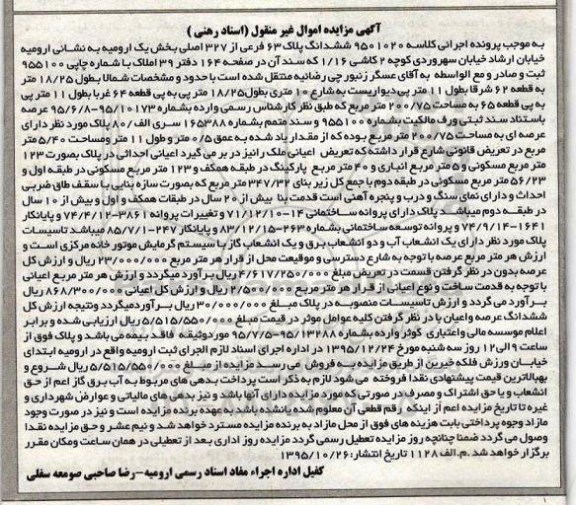 آگهی مزایده اموال غیر منقول (اسناد رهنی)
به موجب پرونده اجرائی کلاسه ۹۵۰۱۰۲۰ ششدانگ پلاک ۶۳ فرعی از ۳۲۷ اصلی بخش یک ارومیه به نشانی ارومیه
خیابان ارشاد خیابان سهروردی کوچه ۲ کاشی ۱/۱۶ که سند آن در صفحه ۱۶۴ دفتر ۳۹ املاک با شماره چاپی ۹۵۵۱۰۰
ثبت و صادر و مع الواسطه به آقای عسگر زنبورچی رضائیه منتقل شده است با حدود و مشخصات شمالا بطول ۱۸/۲۵ متر
به قطعه ۶۲ شرقا بطول ۱۱ متر پی دیواریست به شارع ۱۰ متری بطول ۱۸/۲۵ متر پی به پی قطعه ۶۴ غربا بطول ۱۱ متر پی
به پی قطعه ۶۵ به مساحت ۲۰۰/۷۵ متر مربع که طبق نظر کارشناس رسمی وارده بشماره ۹۵/۱۰۱۷۳-۹۵/۶/۸
باستناد سند ثبتی ورف مالکیت بشماره ۹۵۵۱۰۰ و سند متمم بشماره ۱۶۵۳۸۸ سری الف ۸۰/ پلاک مورد نظر دارای
عرصه ای به مساحت ۲۰۰/۷۵ متر مربع بوده که از مقدار یاد شده به عمق ۰/۵ متر و طول ۱۱ متر ومساحت ۵/۴۰ متر
مربع در تعریض قانونی شارع قرار داشته که تعریض اعیانی ملک را نیز در بر می گیرد اعیانی احداثی در پلاک بصورت ۱۲۳
متر مربع مسکونی و ۵ متر مربع انباری و ۴۰ متر مربع پارکینگ در طبقه همکف و ۱۲۳ متر مربع مسکونی در طبقه اول و
۵۶/۲۳ متر مربع مسکونی در طبقه دوم با جمع کل زیر بنای ۳۴۷/۳۲ متر مربع که بصورت سازه بنایی با سقف طاق ضربی
احداث و دارای نمای سنگ و درب و پنجره آهنی است قدمت بنا بیش از ۲۰ سال در طبقات همکف و اول و بیش از ۱۰ سال
در طبقه دوم میباشد پلاک دارای پروانه ساختمانی ۱۴-۷۱/۱۲/۱۰ و تغییرات پروانه ۳۸۶۱-۷۴/۴/۱۲ و پایانکار
۱۶۴۱-۷۴/۹/۱۴ و پروانه توسعه ساختمانی بشماره ۲۶۳-۸۳/۱۲/۱۵ و پایانکار ۲۴۷-۸۵/۷/۱ میباشد تاسیسات
پلاک مورد نظر دارای یک انشعاب آب و دو انشعاب برق و یک انشعاب گاز با سیستم گرمایش موتور خانه مرکزی است و
ارزش هر متر مربع عرصه با توجه به شارع دسترسی و موقیعت محل از قرار هر متر مربع ۲۳/۰۰۰/۰۰۰ ریال و ارزش کل
عرصه بدون در نظر گرفتن قسمت در تعریض مبلغ ۴/۶۱۷/۲۵۰/۰۰۰ ریال برآورد میگردد و ارزش هر متر مربع اعیانی
با توجه به قدمت ساخت و نوع اعیانی از قرار هر متر مربع ۲/۵۰۰/۰۰۰ ریال و ارزش کل اعیانی ۸۶۸/۳۰۰/۰۰۰ ریال
برآورد می گردد و ارزش تاسیسات منصوبه در پلاک مبلغ ۳۰/۰۰۰/۰۰۰ ریال برآوردمیگردد ونتیجه ارزش کل
ششدانگ عرصه واعیان با در نظر گرفتن کلیه عوامل موثر در قیمت مبلغ ۵/۵۱۵/۵۵۰/۰۰۰ ریال ارزیابی شده و برابر
اعلام موسسه مالی واعتباری کوثر وارده بشماره ۹۵/۱۳۲۸۸-۹۵/۷/۵ موردوثیقه فاقد بیمه می باشد و پلاک فوق از
ساعت ۹ الی ۱۲ روز سه شنبه مورخ ۱۳۹۵/۱۲/۲۴ در اداره اجرای اسناد لازم الجرای ثبت ارومیه واقع در ارومیه ابتدای
خیابان ورزش فلکه خیرین از طریق مزایده به فروش می رسد مزایده از مبلغ ۵/۵۱۵/۵۵۰/۰۰۰ ریال شروع و
بهبالاترین قیمت پیشنهادی نقدا فروخته می شود لازم به ذکر است پرداخت بدهی های مربوط به آب برق گاز اعم از حق
انشعاب و یا حق اشتراک و مصرف در صورتی که مورد مزایده دارای آنها باشد و نیز بدهی های مالیاتی و عوارض شهرداری و
غیره تا تاریخ مزایده اعم از اینکه رقم قطعی آن معلوم شده یانشده باشد به عهده برنده مزایده است و نیز در صورت وجود
مازاد وجوه پرداختی بابت هزینه های فوق از محل مازاد به برنده مزایده مسترد خواهد شد و نیم عشر و حق مزایده نقدا
وصول می گردد ضمنا چنانچه روز مزایده تعطیل رسمی گردد مزایده روز اداری بعد از تعطیلی در همان ساعت ومکان مقرر
برگزار خواهد شد .م.الف ۱۱۲۸ تاریخ انتشار: ۱۳۹۵/۱۰/۲۶
کفیل اداره اجراء مفاد اسناد رسمی ارومیه-رضا صاحبی صومعه سفلی